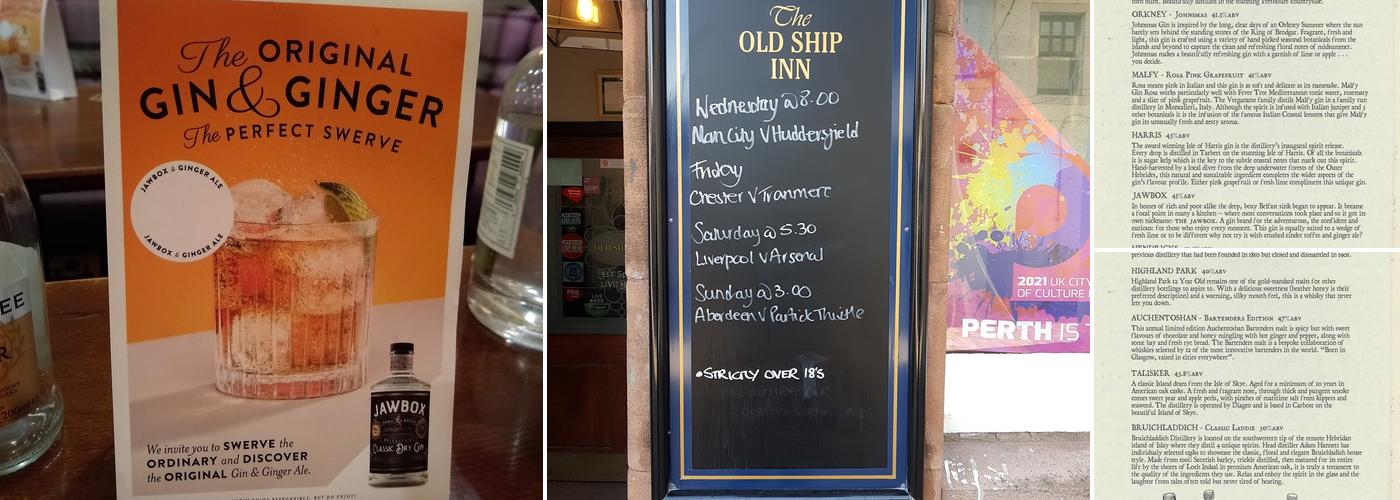 The ORIGINAL
GIN & GINGER
The PERFECT SWERVE
JAWBOX & GINGER ALE
JAWBOX & GINGER ALE
JAWBOX
CLASSIC DRY GIN
We invite you to SWERVE the
ORDINARY and DISCOVER
the ORIGINAL Gin & Ginger Ale.
The
OLD SHIP
INN
Wednesday @ 8.00
Man City V Huddersfield
Friday
Chester V Tranmere
Saturday @ 5.30
Liverpool v Arsenal
Sunday @ 3.00
Aberdeen V Partick Thistle
•STRICTLY OVER 18'S
2021 UK CITY
OF CULTURE
PERTH IS
ORKNEY - Johnsmas 41.5%ABV
Johnsmas Gin is inspired by the long, clear days of an Orkney Summer where the sun
barely sets behind the standing stones of the Ring of Brodgar. Fragrant, fresh and
light, this gin is crafted using a variety of hand picked seasonal botanicals from the
islands and beyond to capture the clean and refreshing floral notes of midsummer.
Johnsmas makes a beautifully refreshing gin with a garnish of lime or apple . . .
you decide.
MALFY - Rosa Pink Grapefruit 41%ABV
Rosa means pink in Italian and this gin is as soft and delicate as its namesake. Malfy
Gin Rosa works particularly well with Fever Tree Mediterranean tonic water, rosemary
and a slice of pink grapefruit. The Vergnano family distils Malfy gin in a family run
distillery in Moncalieri, Italy. Although the spirit is infused with Italian juniper and 5
other botanicals it is the infusion of the famous Italian Coastal lemons that give Malfy
gin its unusually fresh and zesty aroma.
HARRIS 45%ABV
The award winning Isle of Harris gin is the distillery's inaugural spirit release.
Every drop is distilled in Tarbert on the stunning Isle of Harris. Of all the botanicals
it is sugar kelp which is the key to the subtle coastal notes that mark out this spirit.
Hand-harvested by a local diver from the deep underwater forests of the Outer
Hebrides, this natural and sustainable ingredient completes the wider aspects of the
gin's flavour profile. Either pink grapefruit or fresh lime compliment this unique gin.
JAWBOX 43%ABV
In homes of rich and poor alike the deep, boxy Belfast sink began to appear. It became
a focal point in many a kitchen – where most conversations took place and so it got its
own nickname: THE JAWBOX. A gin brand for the adventurous, the confident and
curious: for those who enjoy every moment. This gin is equally suited to a wedge of
fresh lime or to be different why not try it with crushed cinder toffee and ginger ale?
previous distillery that had been founded in 1810 but closed and dismantled in
HIGHLAND PARK 40%ABV
Highland Park 12 Year Old remains one of the gold-standard malts for other
distillery bottlings to aspire to. With a delicious sweetness (heather honey is their
preferred description) and a warming, silky mouth feel, this is a whisky that never
lets you down.
AUCHENTOSHAN - Bartenders Edition 47%ABV
This annual limited edition Auchentoshan Bartenders malt is spicy but with sweet
flavours of chocolate and honey mingling with hot ginger and pepper, along with
some hay and fresh rye bread. The Bartenders malt is a bespoke collaboration of
whiskies selected by 12 of the most innovative bartenders in the world. "Born in
Glasgow, raised in cities everywhere".
TALISKER 45.8%ABV
A classic Island dram from the Isle of Skye. Aged for a minimum of 10 years in
American oak casks. A fresh and fragrant nose, through thick and pungent smoke
comes sweet pear and apple peels, with pinches of maritime salt from kippers and
seaweed. The distillery is operated by Diageo and is based in Carbost on the
beautiful Island of Skye.
BRUICHLADDICH - Classic Laddie 50%ABV
Bruichladdich Distillery is located on the southwestern tip of the remote Hebridean
island of Islay where they distil 4 unique spirits. Head distiller Adam Hannett has
individually selected casks to showcase the classic, floral and elegant Bruichladdich house
style. Made from 100% Scottish barley, trickle distilled, then matured for its entire
life by the shores of Loch Indaal in premium American oak, it is truly a testament to
the quality of the ingredients they use. Relax and enjoy the spirit in the glass and the
laughter from tales often told but never tired of hearing.